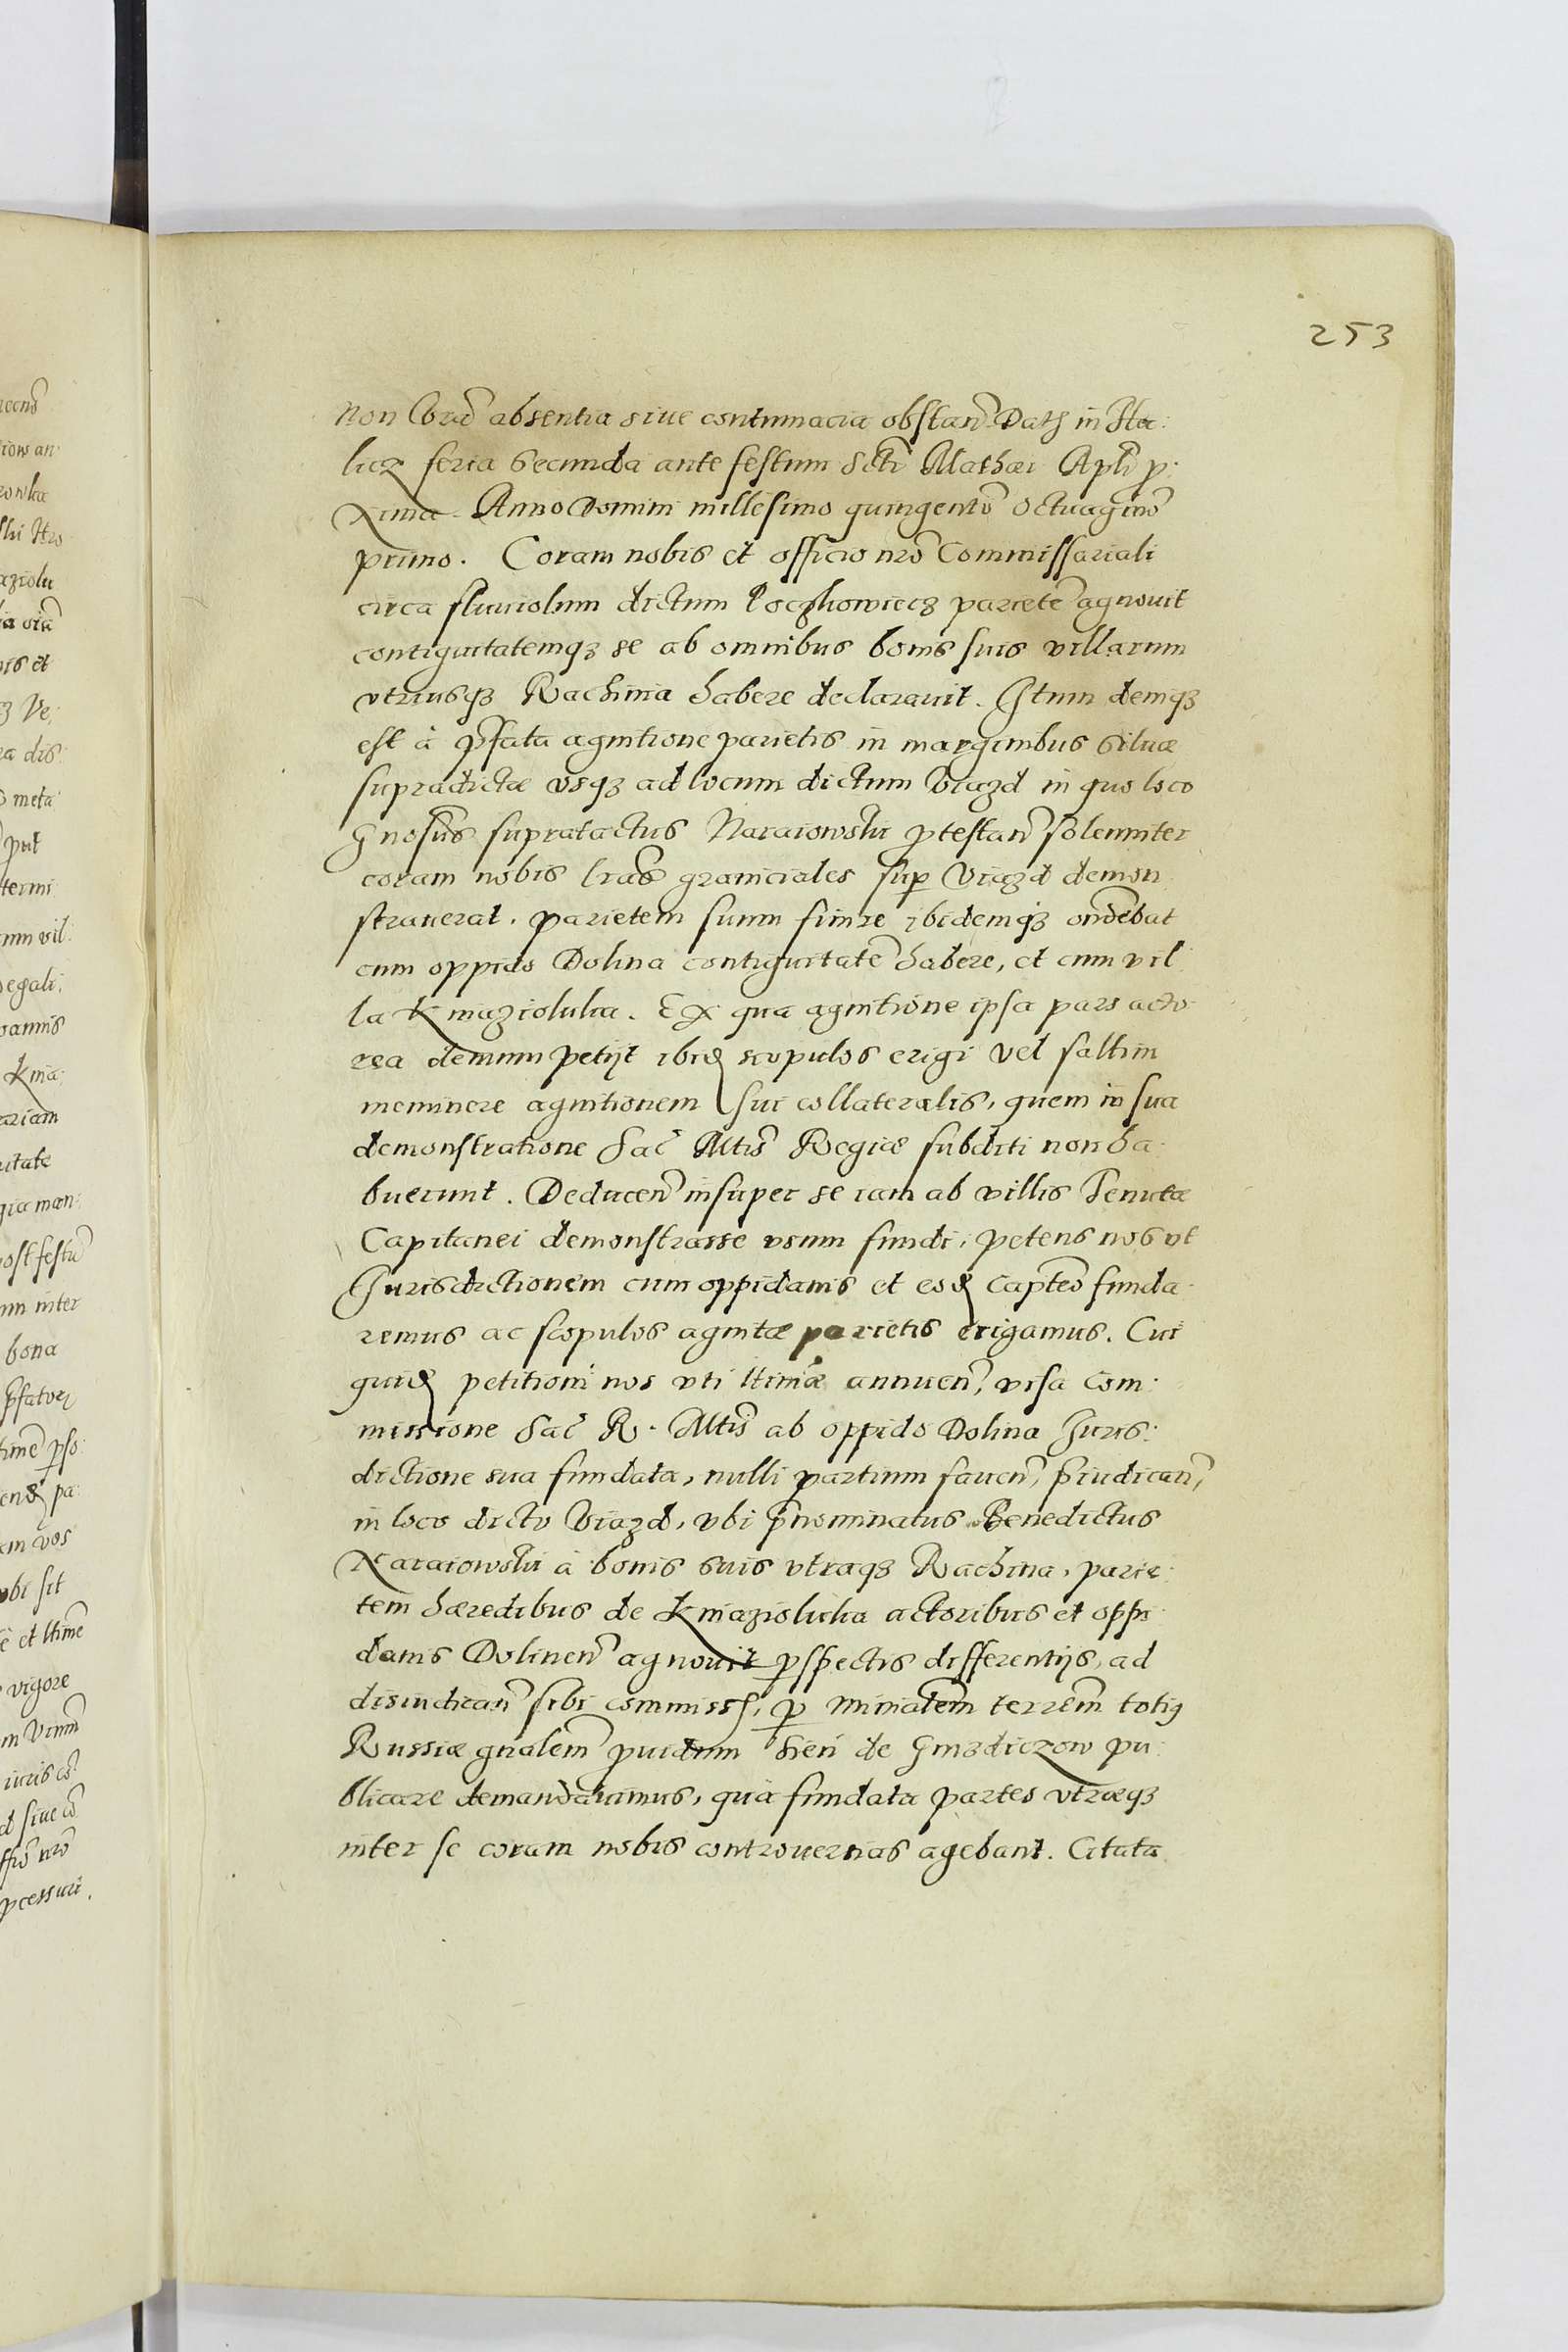 253
non Vrã absentia siue contumacia obstan̄. Datʒ in Ha:
licz feria Secunda ante festum Scti Mathæi Apli p:
xima. Anno Domini millesimo quingentõ Octuaginõ
primo. Coram nobis et officio nrõ Commissariali
circa fluuiolum dictum Loczhowiecz parietẽ agnouit
contiguitatemqʒ se ab omnibus bonis suis villarum
vtriusqʒ Rachinia habere declarauit. Itum demqʒ
est à pfata agnitione parietis in marginibus Siluæ
supradictæ vsqʒ ad locum dictum Viazd in quo loco
Gnosus supratactus Naraiowski ptestan̄ solenniter
coram nobis lrãs graniciales sup Viazd demon
strauerat. parietem suum finire ibidemqʒ ondebat
cum oppido Dolina contiguitatẽ habere, et cum vil
la Kniazioluka. Ex qua agnitione ipsa pars acto
rea demum petijt ibid scopulos erigi vel saltim
meminere agnitionem sui collateralis, quem in sua
demonstratione Sac̃ Mtis Regiæ subditi non ha
buerunt. Deducen̄ insuper se iam ab villis Tenutæ
Capitanei demonstrasse vsum fundi, petens nos vt
Jurisdictionem cum oppidanis et eod Capteo funda
remus ac scopulos agnitæ parietis erigamus. Cui
quid petitioni nos vti ltimæ annuen̄, visa Com:
missione Sac̃ R. Mtis ab oppido Dolina Juris:
dictione sua fundata, nulli partium fauen̄, piudican̄,
in loco dicto Viazd, vbi pnominatus Benedictus
Naraiowski à bonis suis vtraqʒ Rachina, parie:
tem hæredibus de Kniazioluka actoribus et oppi
danis Dolinen̄ agnouit pspectis differentijs, ad
disiudican̄ sibi commiss, p Minialem terrem totiꝰ
Russiæ gnalem puidum Hien de Gniazdiczow pu:
blicare demandauimus, qua fundata partes vtræqʒ
inter se coram nobis controuersias agebant. Citata